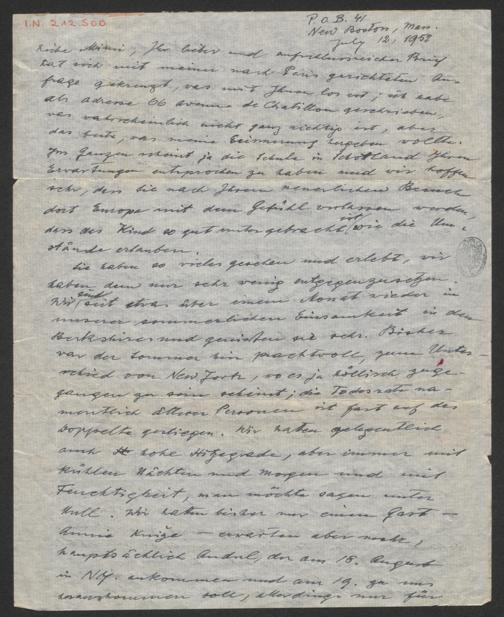 I.N. 212.500
P.O.B. 41
New Boston, Mass.
July 12, 1952
Liebe Mimi, Ihr lieber und aufschlussreicher Brief
hat sich mit meiner nach Paris gerichteten An-
frage gekreuzt, was mit Ihnen los ist; ich habe
als Adresse 66 avenue de Chatillon geschrieben,
was wahrscheinlich nicht ganz richtig ist, aber
das beste, was meine Erinnerung hergeben wollte.
Im Ganzen scheint ja die Schule in Schottland Ihren
Erwartungen entsprochen zu haben und wir hoffen
sehr, dass Sie nach Ihrem neuerlichen Besuch
dort Europa mit dem Gefühl verlassen werden,
dass das Kind so gut untergebracht ist, wie die Um-
stände erlauben.
Sie haben so vieles gesehen und erlebt, wir
haben dem nur sehr wenig entgegenzusetzen.
Wir sind seit etwas über einem Monat wieder in
unserer sommerlichen Einsamkeit in den
Berkshires und geniessen sie sehr. Bisher
war der Sommer hier prachtvoll, zum Unter-
schied von New York, wo es ja höllisch zuge-
gangen zu sein scheint; die Todesrate na-
mentlich älterer Personen ist fast auf das
Doppelte gestiegen. Wir hatten gelegentlich
auch hohe Hitzegrade, aber immer mit
kühlen Nächten und Morgen und mit
Feuchtigkeit, man möchte sagen unter
Null. Wir hatten bisher nur einen Gast —
Annie — erwarten aber mehr,
hauptsächlich André, der am 18. August
in N.Y. ankommen und am 19. zu uns
herauskommen soll, allerdings nur für